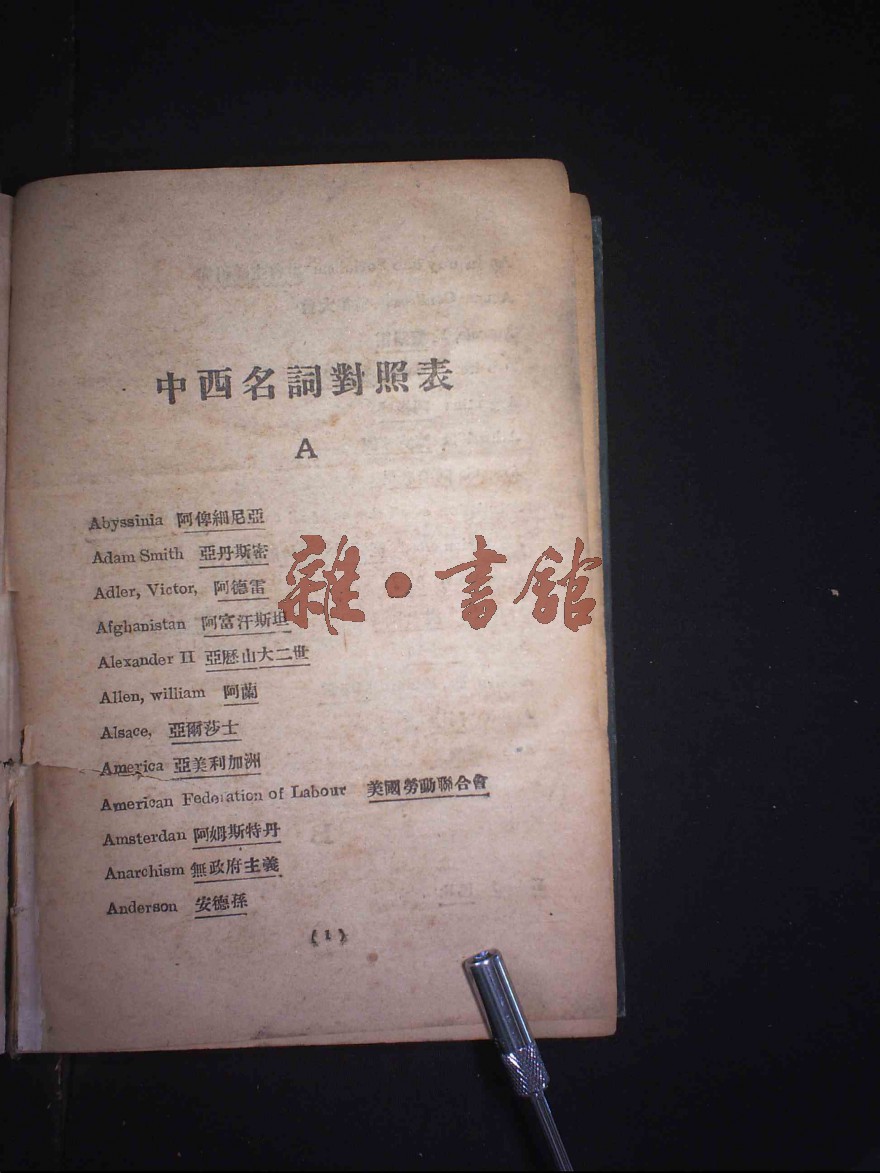 中西名詞對照表
A
Abyssinia 阿俾細尼亞
Adam Smith 亞丹斯密
Adler, Victor, 阿德雷
Afghanistan 阿富汗斯坦
Alexander II 亞歷山大二世
Allen, william 阿蘭
Alsace, 亞爾莎士
America 亞美利加洲
American Federation of Labour 美國勞動聯合會
Amsterdan 阿姆斯特丹
Anarchism 無政府主義
Anderson 安德孫
(1)
雜·書館